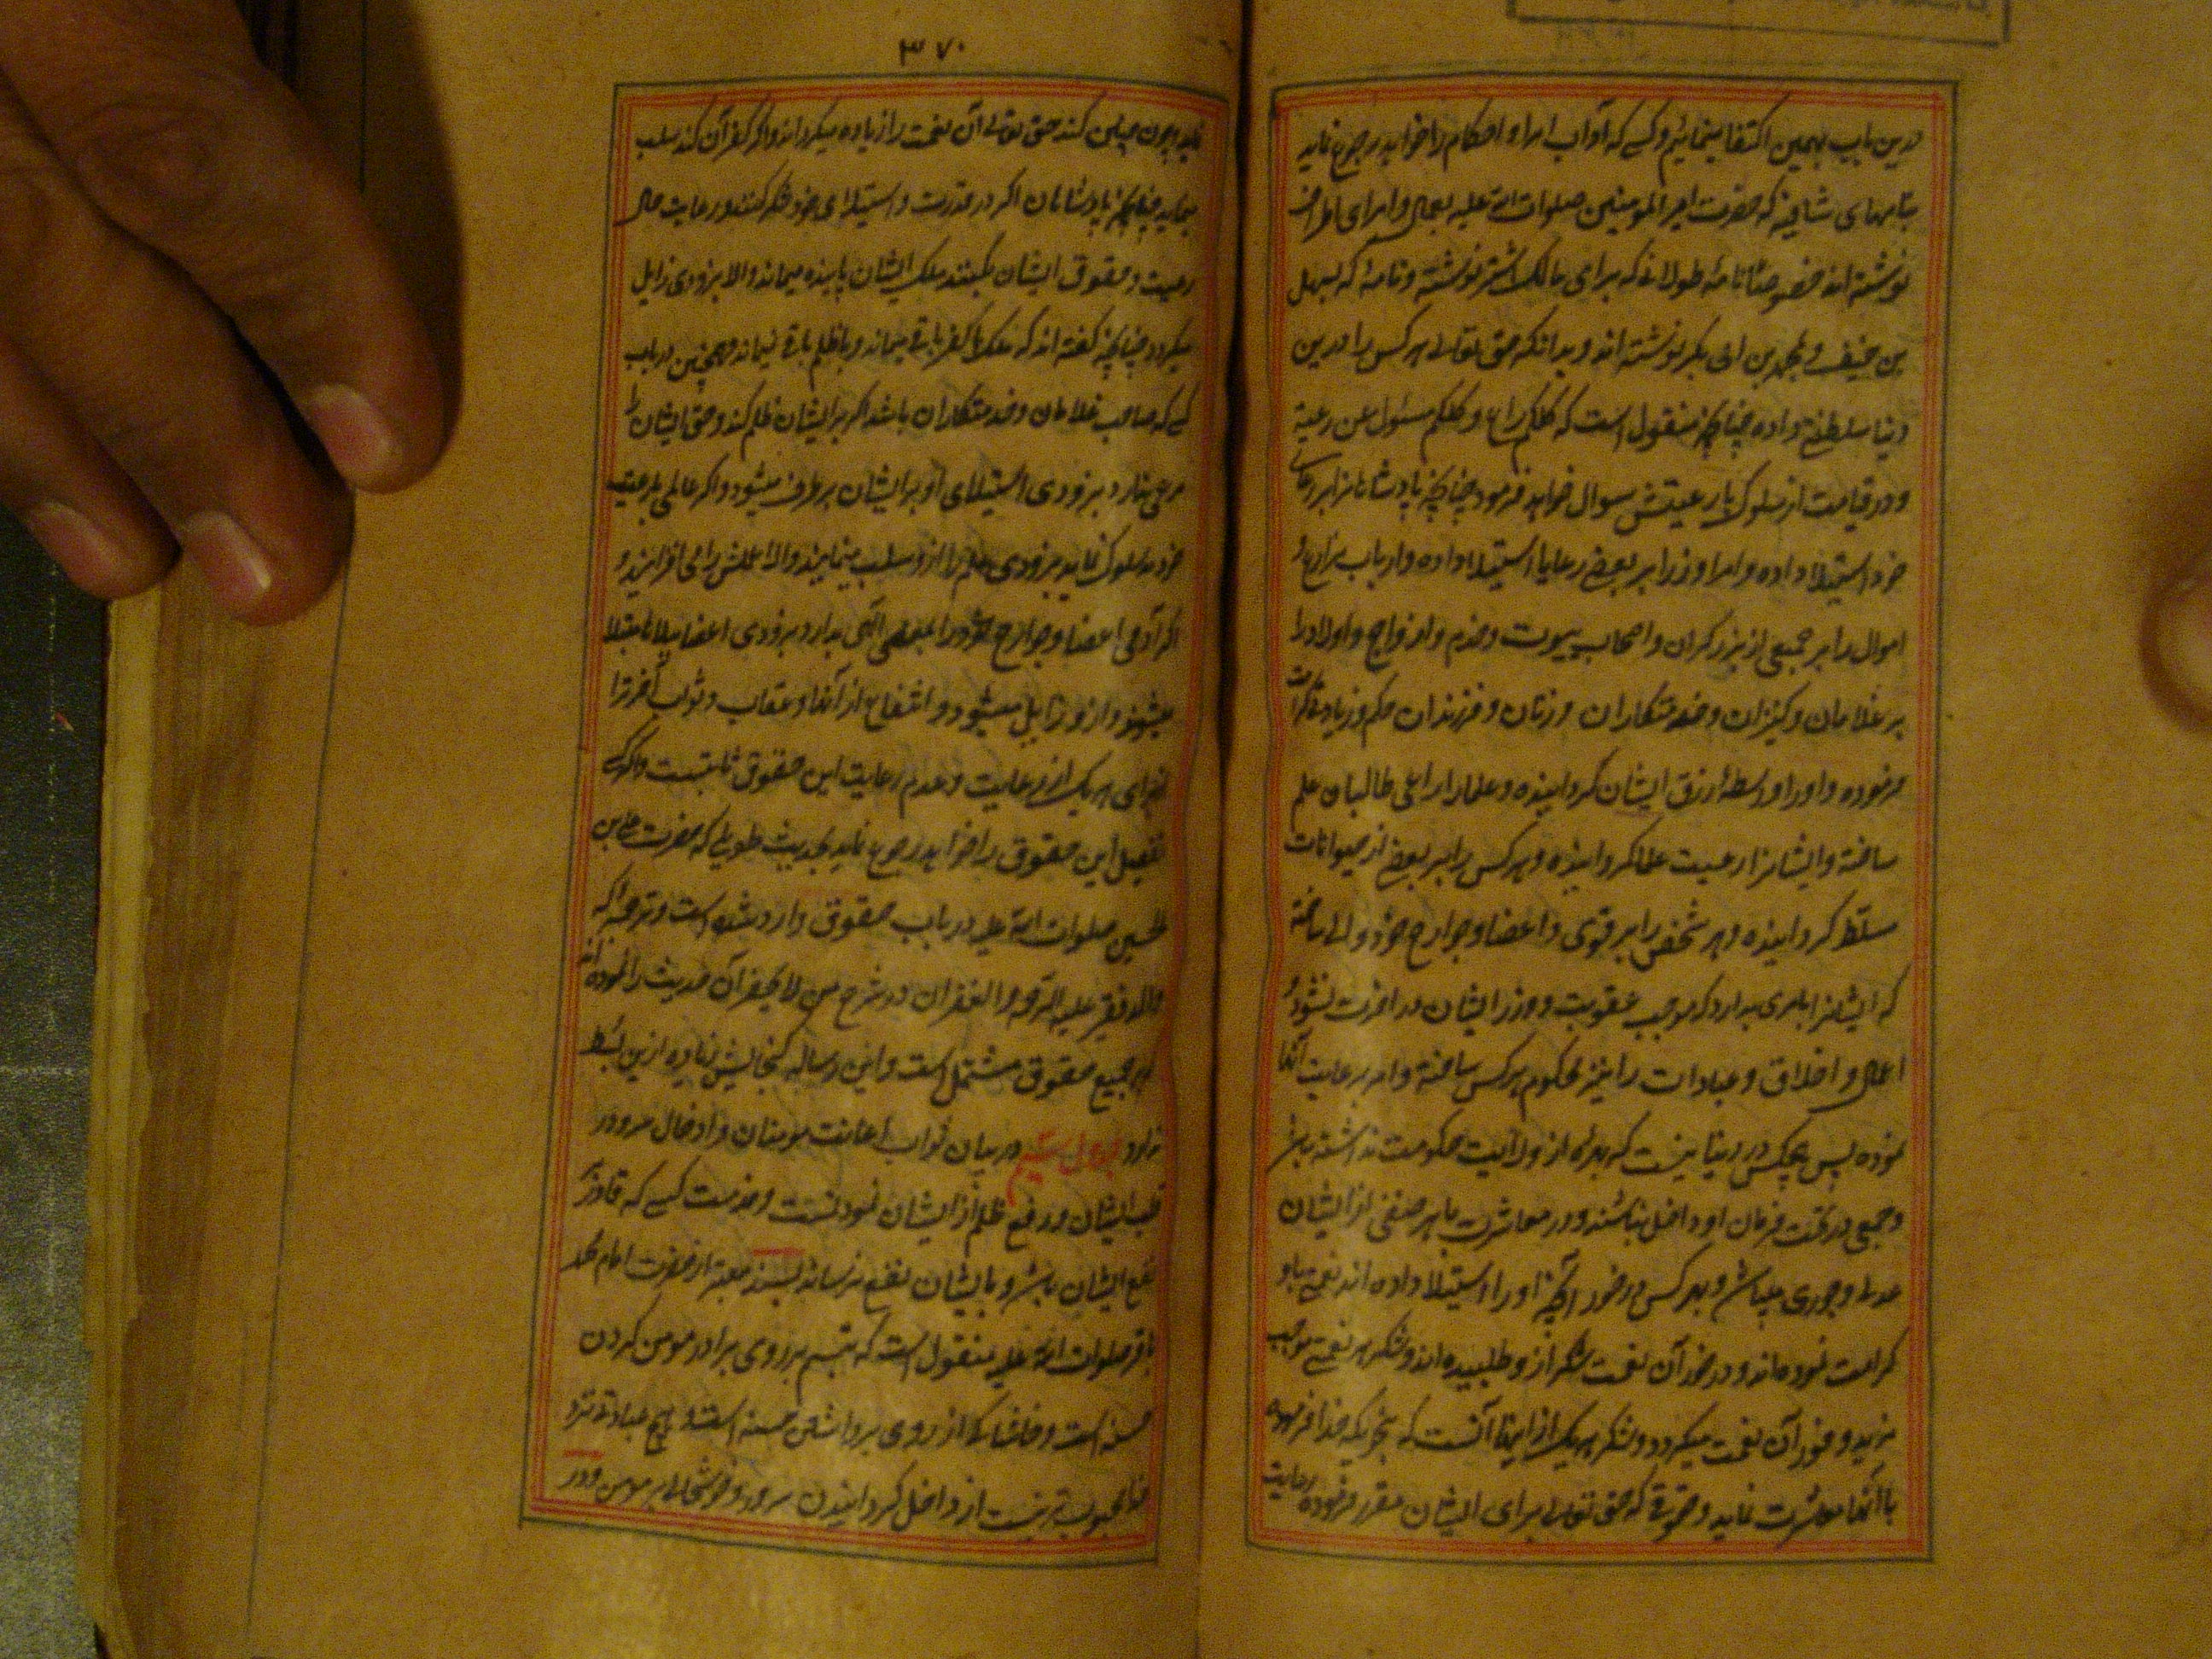 درین باب بهمین اکتفا مینمائیم و کسے که آداب امرا و احکام را خواهد رجوع نماید
بنامهای شافیه که حضرت امیر المومنین صلوات الله علیه بعمال و امرای اطراف
نوشته اند خصوصًا نامه طولانی که برای مالک اشتر نوشته و نامهٔ که بسهل
بن حنیف و محمد بن ابی بکر نوشته اند و بدانکه حق تعالی هر کس را درین
دنیا سلطنتی داده چنانچه منقول است که کلکم راع و کلکم مسئول عن رعیته
و در قیامت از سلوک با رعیتش سوال خواهد فرمود چنانچه پادشاهانرا بر رعایای
خود استیلا داده و امرا و وزرا بر بعضے رعایا استیلا داده و ارباب مزارع و
اموال را بر جمعی از برزگران و اصحاب بیوت و خدم و ازواج و اولاد را
بر غلامان و کنیزان و خدمتکاران و زنان و فرزندان حکم و زیادتی کرامت
فرموده و او را واسطهٔ رزق ایشان گردانیده و علما را راعی طالبان علم
ساخته و ایشانرا رعیت علما گردانیده و هر کس را بر بعضے از حیوانات
مسلّط گردانیده و هر شخص را بر قوی و اعضا و جوارح خود والی ساخته
که ایشانرا بامری بدارد که موجب عقوبت و وزر ایشان در آخرت نشود و
اعمال و اخلاق و عبادات را نیز محکوم هر کس ساخته و امر برعایت آنها
نموده پس هیچکس در دنیا نیست که بهرهٔ از ولایت حکومت نداشته باشد
و جمعی در تحت فرمان او داخل نباشند و در معاشرت با هر صنفی از ایشان
عدل و جوری میباشد و بهر کس در خور آنچه او را استیلا داده اند نعمتی باو
کرامت نموده اند و در خور آن نعمت شکر ازو طلبیده اند و شکر هر نعمتے موجب
مزید وفور آن نعمت میگردد و شکر هر یک از اینها آنست که بنحویکه خدا فرموده
با آنها معاشرت نماید و حقوقے که حق تعالی برای ایشان مقرر فرموده رعایت
۳۷۰
نماید و چون چنین کند حق تعالی آن نعمت را زیاده میگرداند و اگر کفران کند سلب
مینماید چنانچه پادشاهان اگر در قدرت و استیلای خود شکر کنند و رعایت حال
رعیت و حقوق ایشان بکنند ملک ایشان پاینده میماند و الا بزودی زایل
میگردد چنانچه گفته اند که ملک با کفر باقی میماند و با ظلم باقی نمیماند و همچنین در باب
کسے که صاحب غلامان و خدمتکاران باشد اگر بر ایشان ظلم کند و حق ایشان را
مرعی ندارد بزودی استیلای او بر ایشان برطرف میشود و اگر عالمی با رعیت
خود بد سلوک نماید بزودی علم را ازو سلب مینمایند و الا علمش را می افزایند و
اگر آدمی اعضا و جوارح خود را بمعصی الٓهی بدارد بزودی اعضا ببلاها مبتلا
میشوند و ازو زایل میشود و انتفاع از آنها و عقاب و ثواب آخرت را
برای هر یک از رعایت و عدم رعایت این حقوق ثابتست و اگر کسے
تفصیل این حقوق را خواهد رجوع نماید بحدیث طویلی که حضرت علی بن
الحسین صلوات الله علیه در باب حقوق وارد شده است و ترجمه اکه
والد فقیر علیه الرحمة و الغفران در شرح من لا یحضر آن حدیث را نموده اند
بر جمیع حقوق مشتمل است و این رساله گنجایش زیاده ازین بسط
ندارد در بیان ثواب اعانت مومنان و ادخال سرور در
قلب ایشان و رفع ظلم از ایشان نمودنست و مذمت کسے که قادر بر
نفع ایشان باشد و بایشان نفع نرساند بسند معتبر از حضرت امام محمد
باقر صلوات الله علیه منقول است که تبسم بر روی برادر مومن کردن
حسنه است و خاشاکے از روی برداشتن حسنه است و هیچ عبادتے نزد
خدا محبوب تر نیست از داخل گردانیدن سرور و خوشحالی بر مومن و در